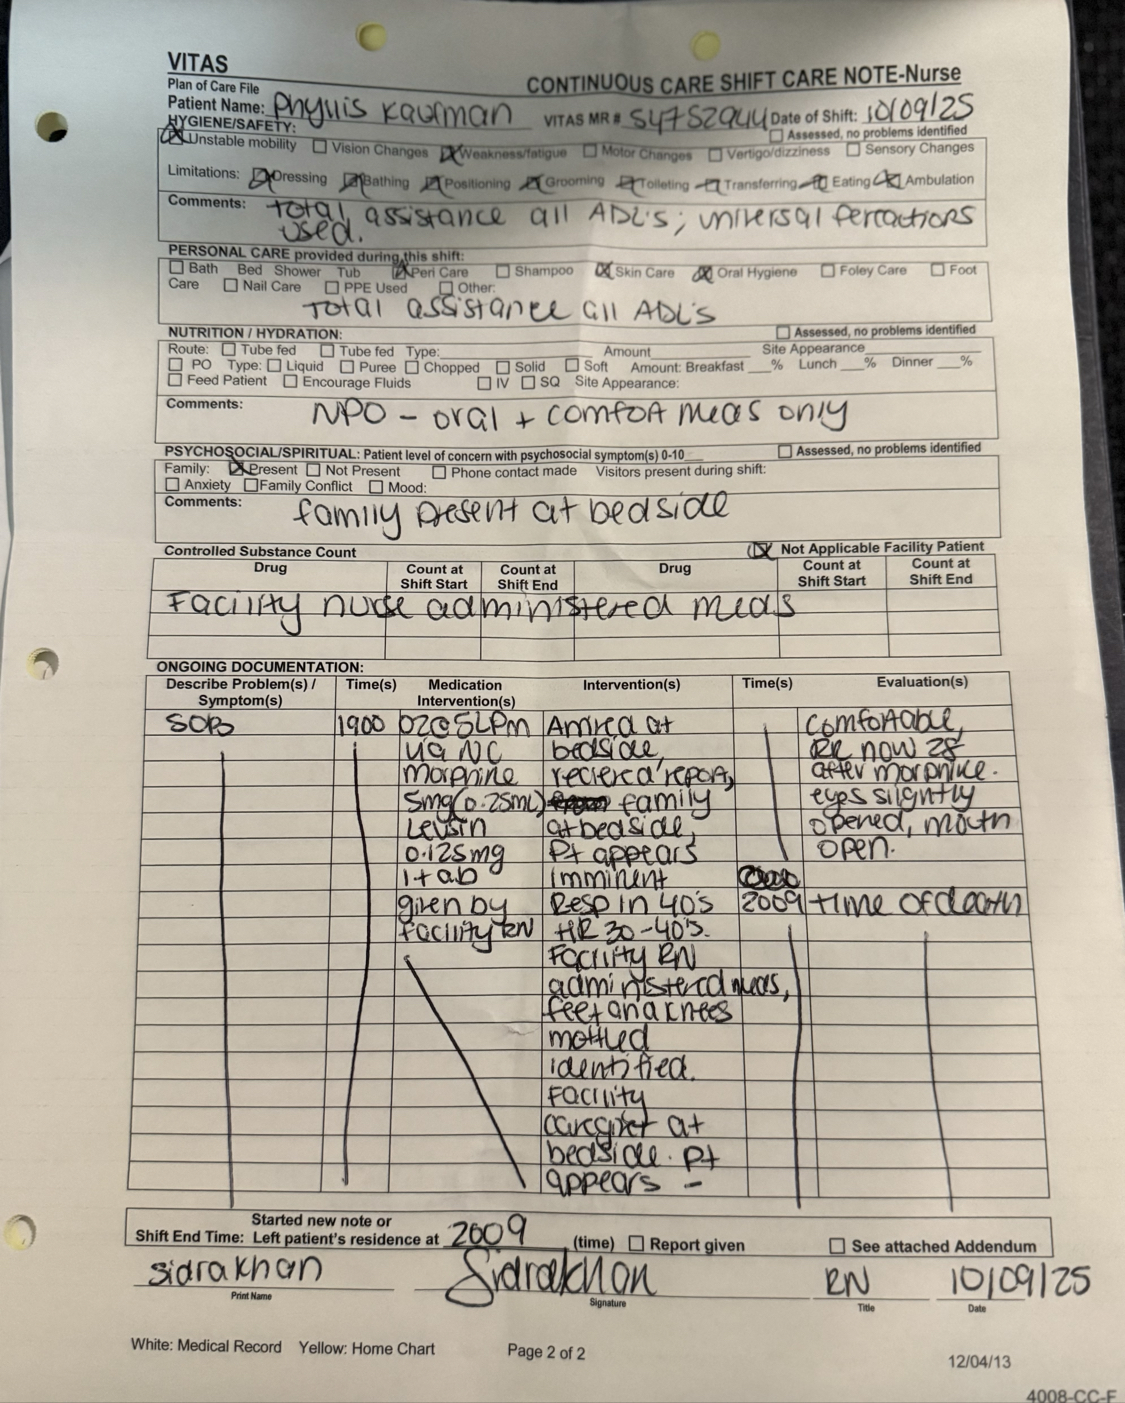 VITAS
Plan of Care File
CONTINUOUS CARE SHIFT CARE NOTE-Nurse
Patient Name: Phyllis Kaufman VITAS MR # 54752944 Date of Shift: 10/09/25
HYGIENE/SAFETY: Assessed, no problems identified
Unstable mobility Vision Changes Weakness/fatigue Motor Changes Vertigo/dizziness Sensory Changes
Limitations: Dressing Bathing Positioning Grooming Toileting Transferring Eating Ambulation
Comments: Total assistance all ADL's; universal percations
used.
PERSONAL CARE provided during this shift:
Bath Bed Shower Tub Peri Care Shampoo Skin Care Oral Hygiene Foley Care Foot
Care Nail Care PPE Used Other:
Total assistance all ADL's
NUTRITION / HYDRATION: Assessed, no problems identified
Route: Tube fed Tube fed Type: Amount Site Appearance
PO Type: Liquid Puree Chopped Solid Soft Amount: Breakfast ___% Lunch ___% Dinner ___%
Feed Patient Encourage Fluids IV SQ Site Appearance:
Comments: NPO - oral + comfort meds only
PSYCHOSOCIAL/SPIRITUAL: Patient level of concern with psychosocial symptom(s) 0-10 Assessed, no problems identified
Family: Present Not Present Phone contact made Visitors present during shift:
Anxiety Family Conflict Mood:
Comments: family present at bedside
Controlled Substance Count Not Applicable Facility Patient
Drug Count at Shift Start Count at Shift End Drug Count at Shift Start Count at Shift End
Facility nurse administered meds
ONGOING DOCUMENTATION:
Describe Problem(s) / Symptom(s) Time(s) Medication Intervention(s) Intervention(s) Time(s) Evaluation(s)
SOB 1900 O2@5LPM Arrived at comfortable,
via NC bedside, RR now 28
morphine recieved report, after morphine.
5mg(0.25mL) family eyes slightly
Levsin at bedside, opened, mouth
0.125mg Pt appears open.
1 tab imminent
given by Resp in 40's 2009 time of death
facility RN HR 30-40's.
Facility RN
administered meds,
feet and knees
mottled
identified.
Facility
caregiver at
bedside. Pt
appears -
Started new note or
Shift End Time: Left patient's residence at 2009 (time) Report given See attached Addendum
sidra khan Sidra Khan RN 10/09/25
Print Name Signature Title Date
White: Medical Record Yellow: Home Chart Page 2 of 2
12/04/13
4008-CC-F